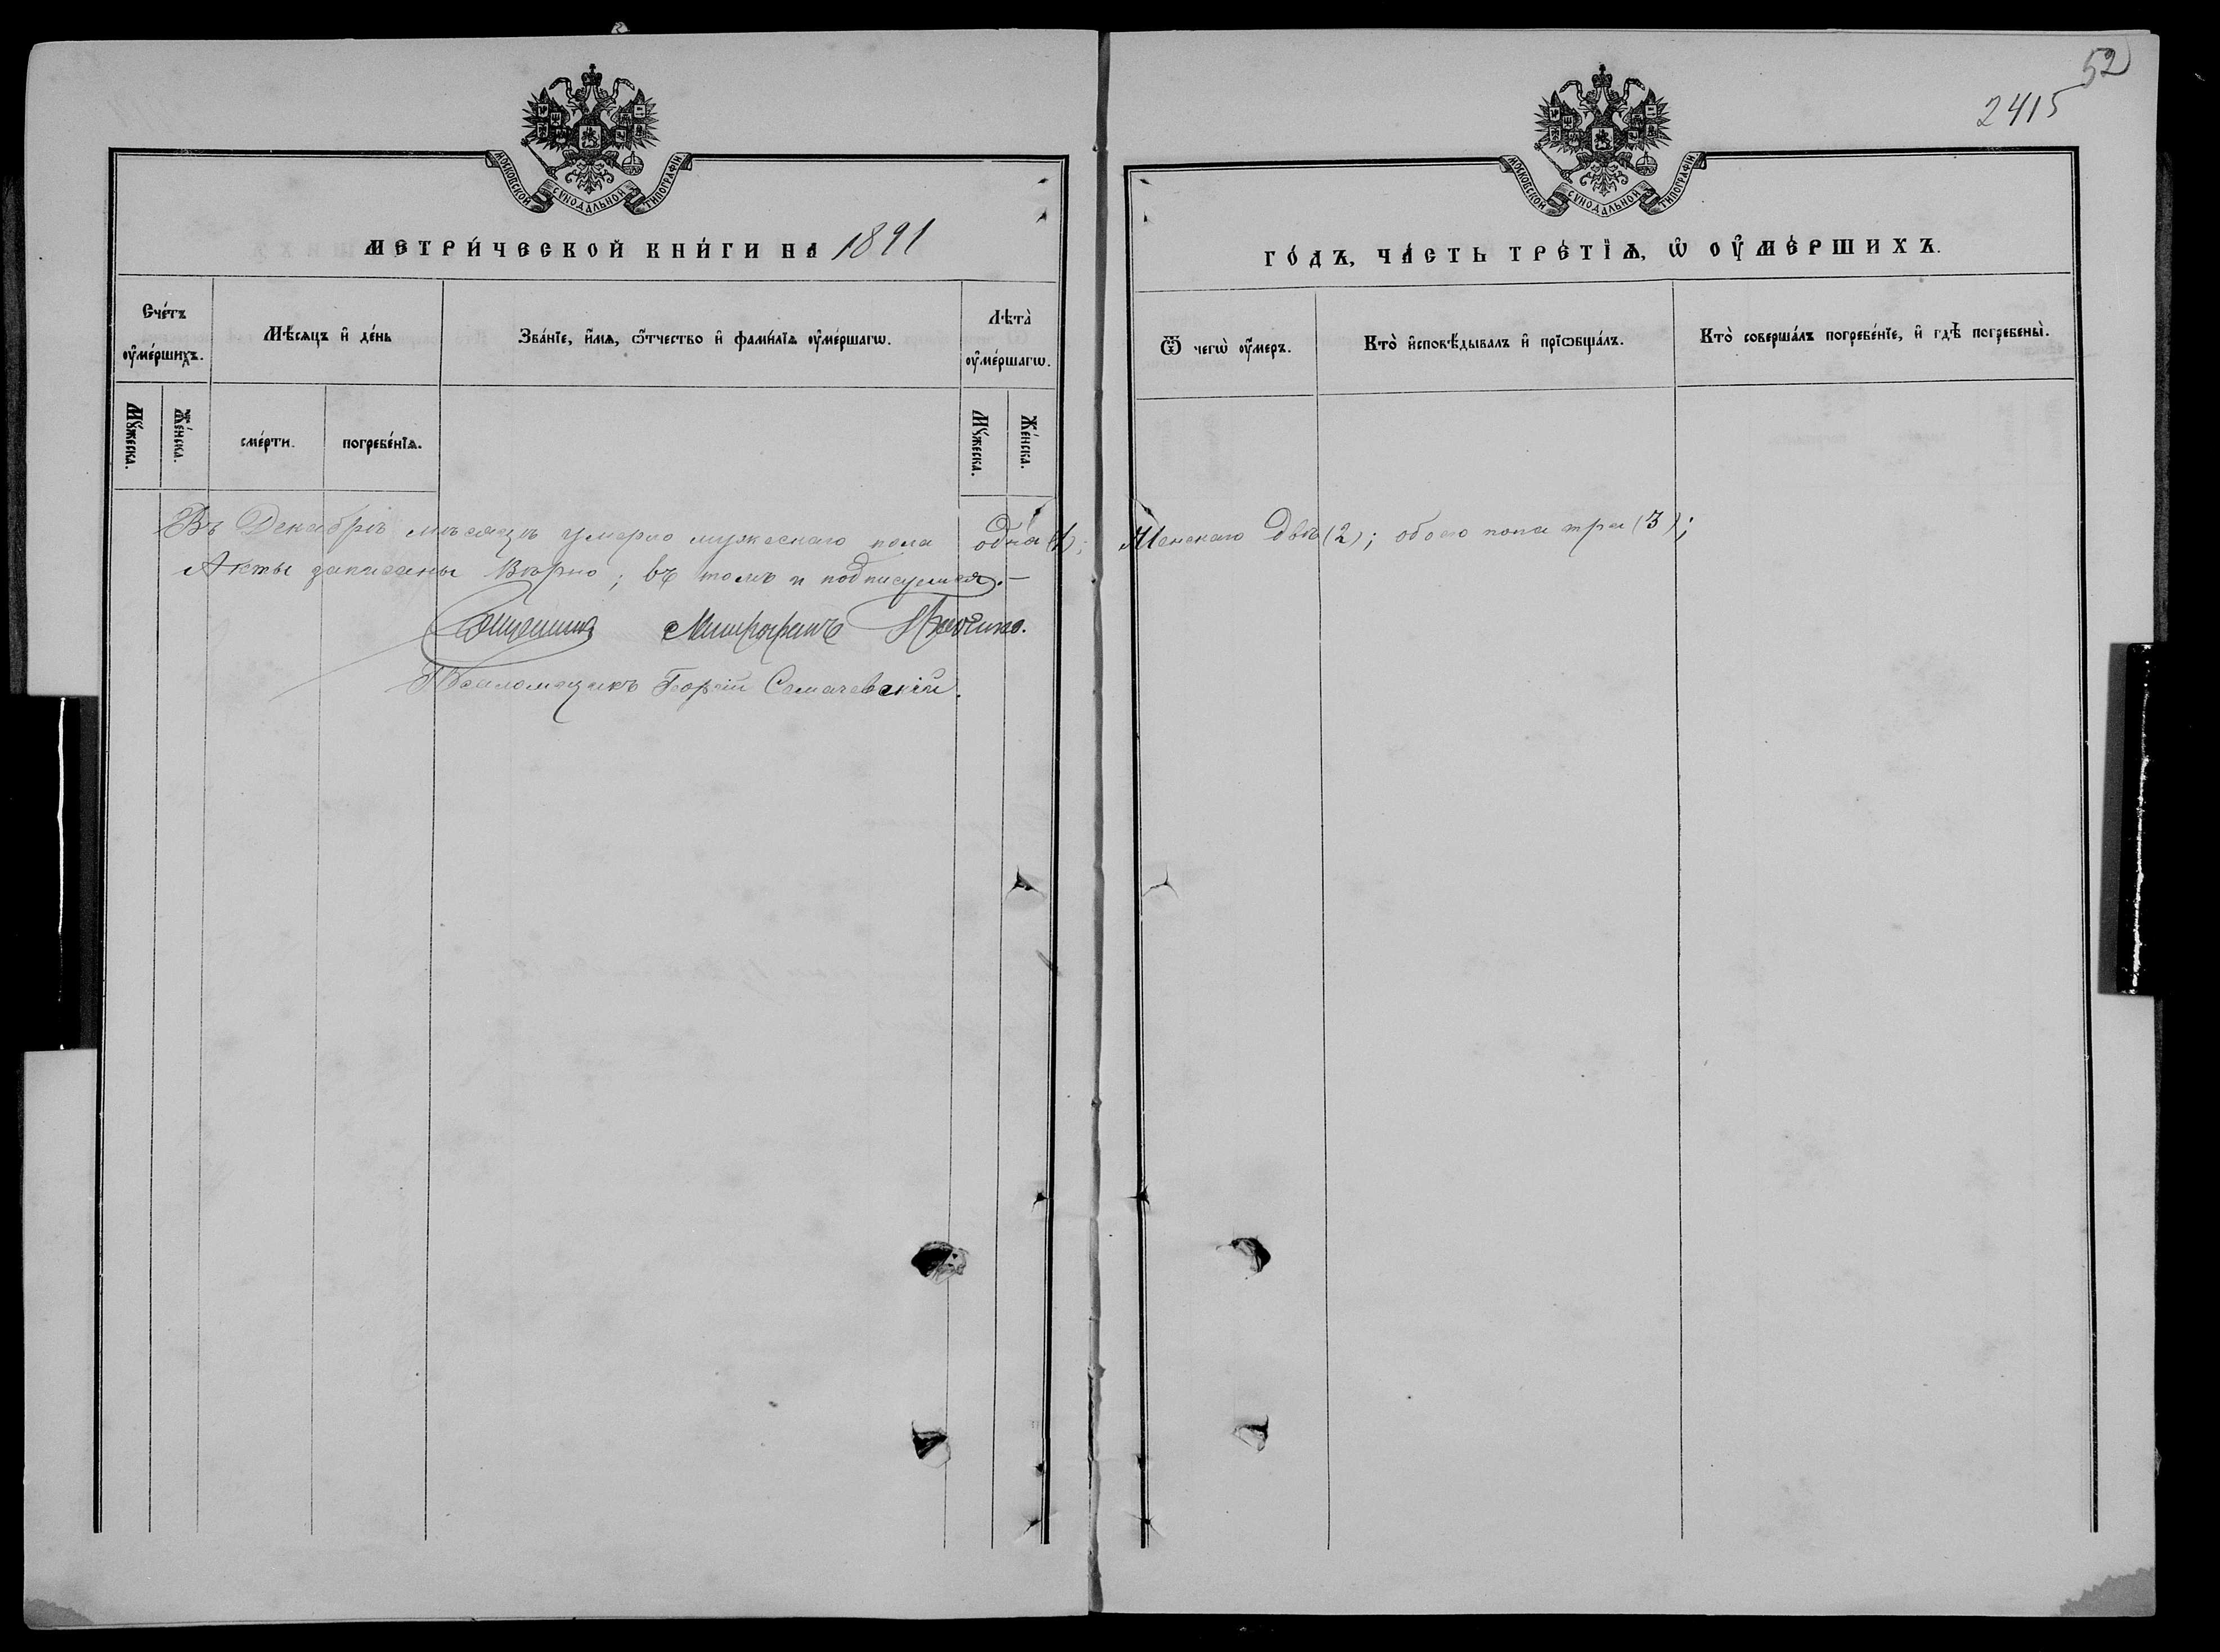 52
2415
МОСКОВСКОЙ СУНОДАЛЬНОЙ ТИПОГРАФІИ
МОСКОВСКОЙ СУНОДАЛЬНОЙ ТИПОГРАФІИ
МЕТРИ́ЧЕСКОЙ КНИ́ГИ НА 1891
ГО́ДЪ, ЧА́СТЬ ТРЕ́ТІѦ, Ѡ҆ ОУ҆МЕ́РШИХЪ.
Сче́тъ оу҆ме́ршихъ.
Мѣ́сяцъ и҆ де́нь
Зва́нїе, и҆́мѧ, ѻ҆́тчество и҆ фами́лїѧ оу҆ме́ршагѡ.
Лѣта̀ оу҆ме́ршагѡ.
Ѿ чегѡ̀ оу҆́меръ.
Кто̀ и҆сповѣ́дывалъ и҆ прїѡбща́лъ.
Кто̀ соверша́лъ погребе́нїе, и҆ гдѣ̀ погребены̀.
Мꙋ́жеска.
Же́нска.
сме́рти.
погребе́нїѧ.
Мꙋ́жеска.
Же́нска.
Въ Декабрѣ мѣсяцѣ умерло мужескаго пола одна (1); Женскаго двѣ (2); обоего пола три (3);
Акты записаны Вѣрно; въ томъ и подписуемся.—
Священникъ Митрофанъ
Псаломщикъ Георгій Семачевскій.